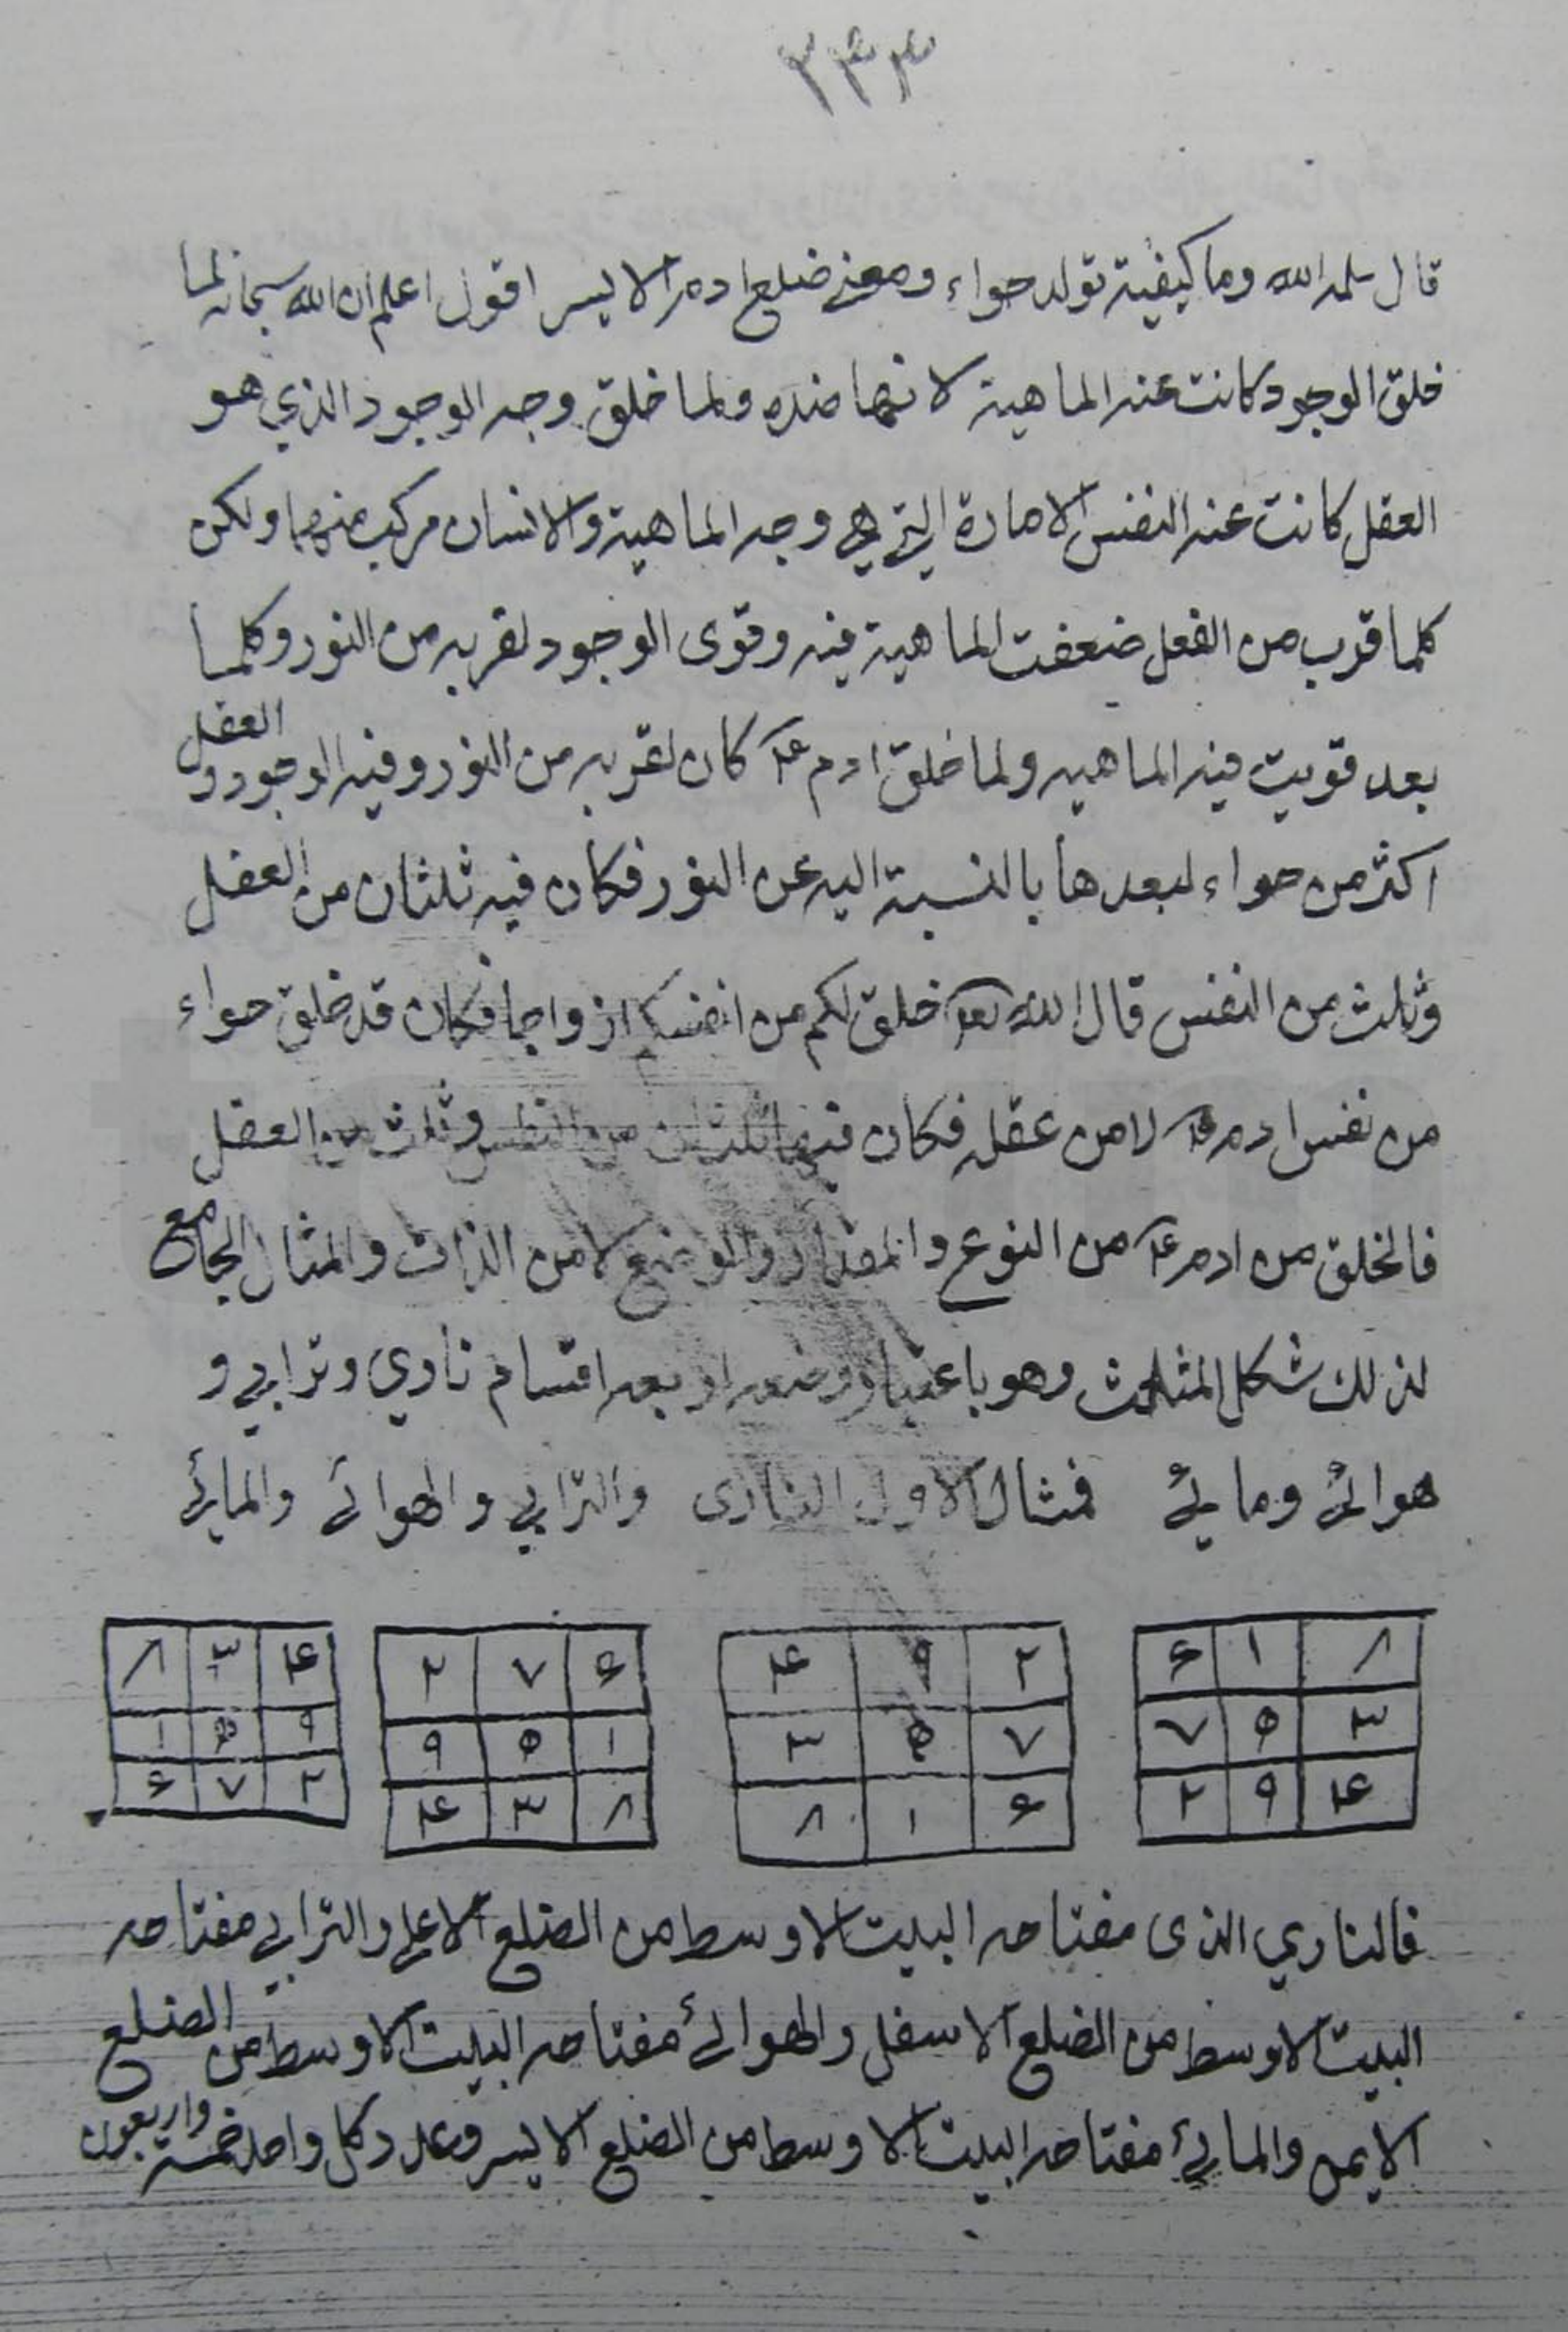 ٣٣٣
قال سلمه الله وما كيفية تولد حواء ومعنى ضلع ادم الايسر اقول اعلم ان الله سبحانه لما
خلق الوجود كانت عنه الماهية لانها ضده ولما خلق وجه الوجود الذي هو
العقل كانت عنه النفس الامارة التي هي وجه الماهية والانسان مركب منهما ولكن
كلما قرب من الفعل ضعفت الماهية فيه وقوى الوجود لقربه من النور وكلما
بعد قويت فيه الماهيه ولما خلق ادم ع كان لقربه من النور وفيه الوجود و العقل
اكثر من حواء لبعدها بالنسبة اليه عن النور فكان فيه ثلثان من العقل
وثلث من النفس قال الله تعا خلق لكم من انفسكم ازواجا فكان قد خلق حواء
من نفس ادم ع لا من عقله فكان فيها ثلثان من النفس وثلث من العقل
فالخلق من ادم ع من النوع والمقدار والوضع لا من الذات والمثال الجامع
لذلك شكل المثلث وهو باعتبار وضعه اربعه اقسام ناري وترابي و
هوائي ومايي فمثال الاول الناري والترابي والهوائي والمائي
٦ ١ ٨
٧ ٥ ٣
٢ ٩ ۴
۴ ٩ ٢
٣ ٥ ٧
٨ ١ ٦
٢ ٧ ٦
٩ ٥ ١
۴ ٣ ٨
٨ ٣ ۴
١ ٥ ٩
٦ ٧ ٢
فالناري الذى مفتاحه البيت الاوسط من الضلع الاعلى والترابي مفتاحه
البيت الاوسط من الضلع الاسفل والهوائي مفتاحه البيت الاوسط من الضلع
الايمن والمائي مفتاحه البيت الاوسط من الضلع الايسر وعدد كل واحد خمسة واربعون